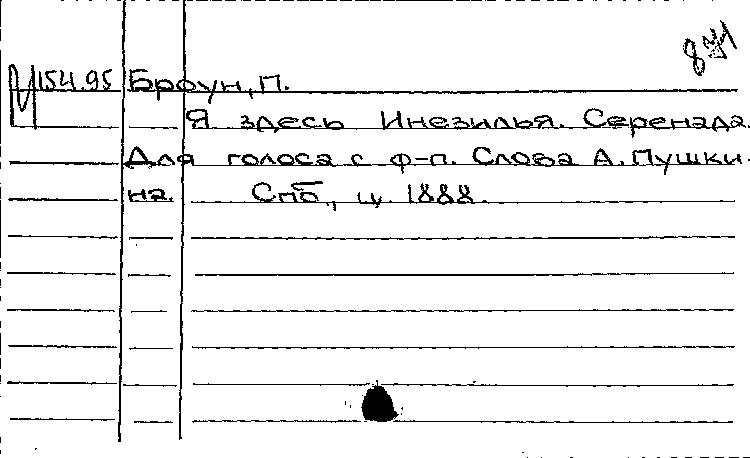 М154.95 Броун, П.
Я здесь Инезилья. Серенада.
Для голоса с ф-п. Слова А. Пушки-
на. Спб., ц. 1888.